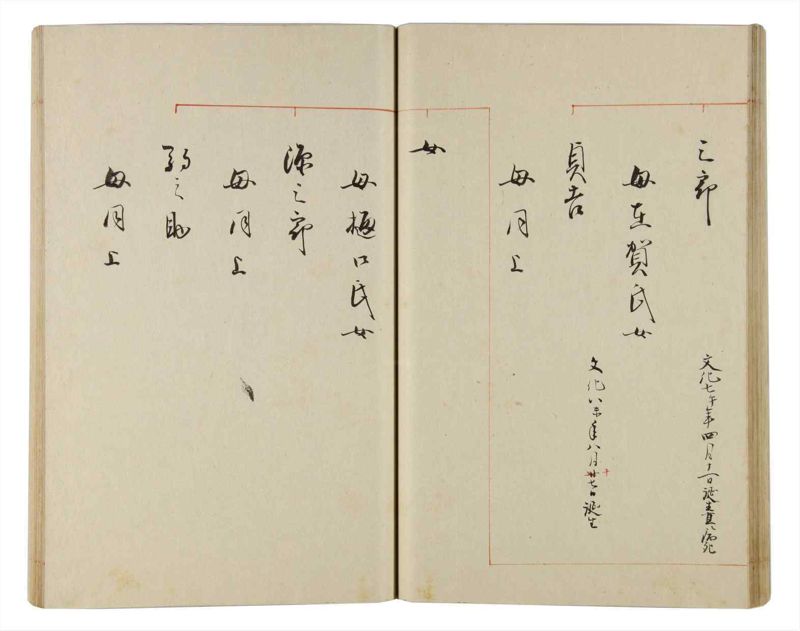 三郎
文化七午年四月十一日誕生 病死
母有賀氏女
貞吉
文化八未年八月廿七日誕生
十
母同上
女
母樋口氏女
源三郎
母同上
之助
母同上